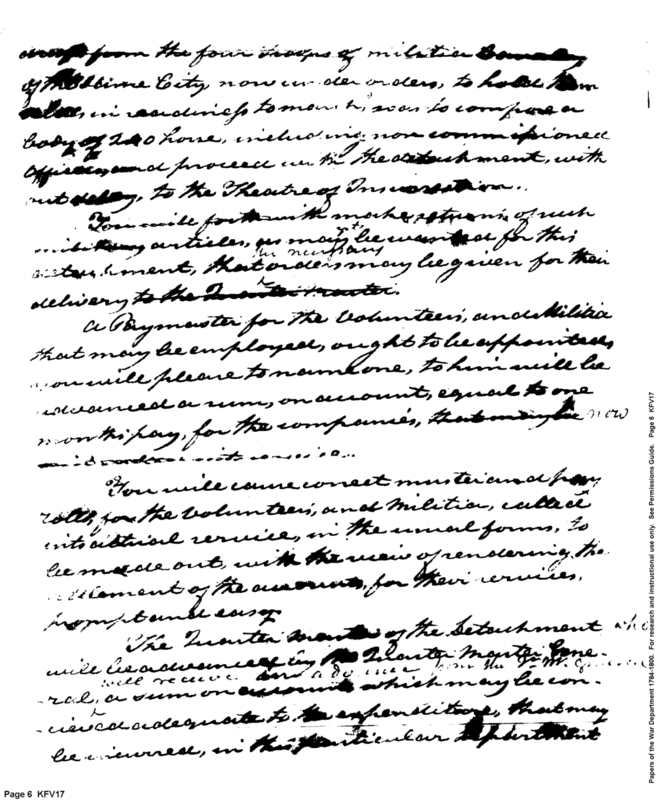 from the four troops of militia Cavalry
of the City now under orders, to hold them
selves, in readiness to march, so as to compose a
body of 240 horse, including non commissioned
officers and proceed with the detachment, with
out delay, to the Theatre of Insurrection.
You will forthwith make returns of such
military articles, as may be wanted for this
be necessary
detachment, that orders may be given for their
delivery to the Quarter Master.
A Paymaster for the Volunteers, and Militia
that may be employed, ought to be appointed,
you will please to name one, to him will be
advanced a sum, on account, equal to one
months pay, for the companies, that may be now
You will cause correct muster and pay
rolls, for the Volunteers, and Militia, called
into actual service, in the usual forms, to
be made out, with the view of rendering the
settlement of the accounts, for their services,
prompt and easy
The Quarter Master of the Detachment who
will be advanced by the Quarter Master Gene-
will receive an advance from the Qr. M. General
ral, a sum on account which may be con-
ceived adequate to the expenditure, that may
be incurred, in this particular department
Page 6 KFV17
Papers of the War Department 1784-1800. For research and instructional use only. See Permissions Guide. Page 6 KFV17